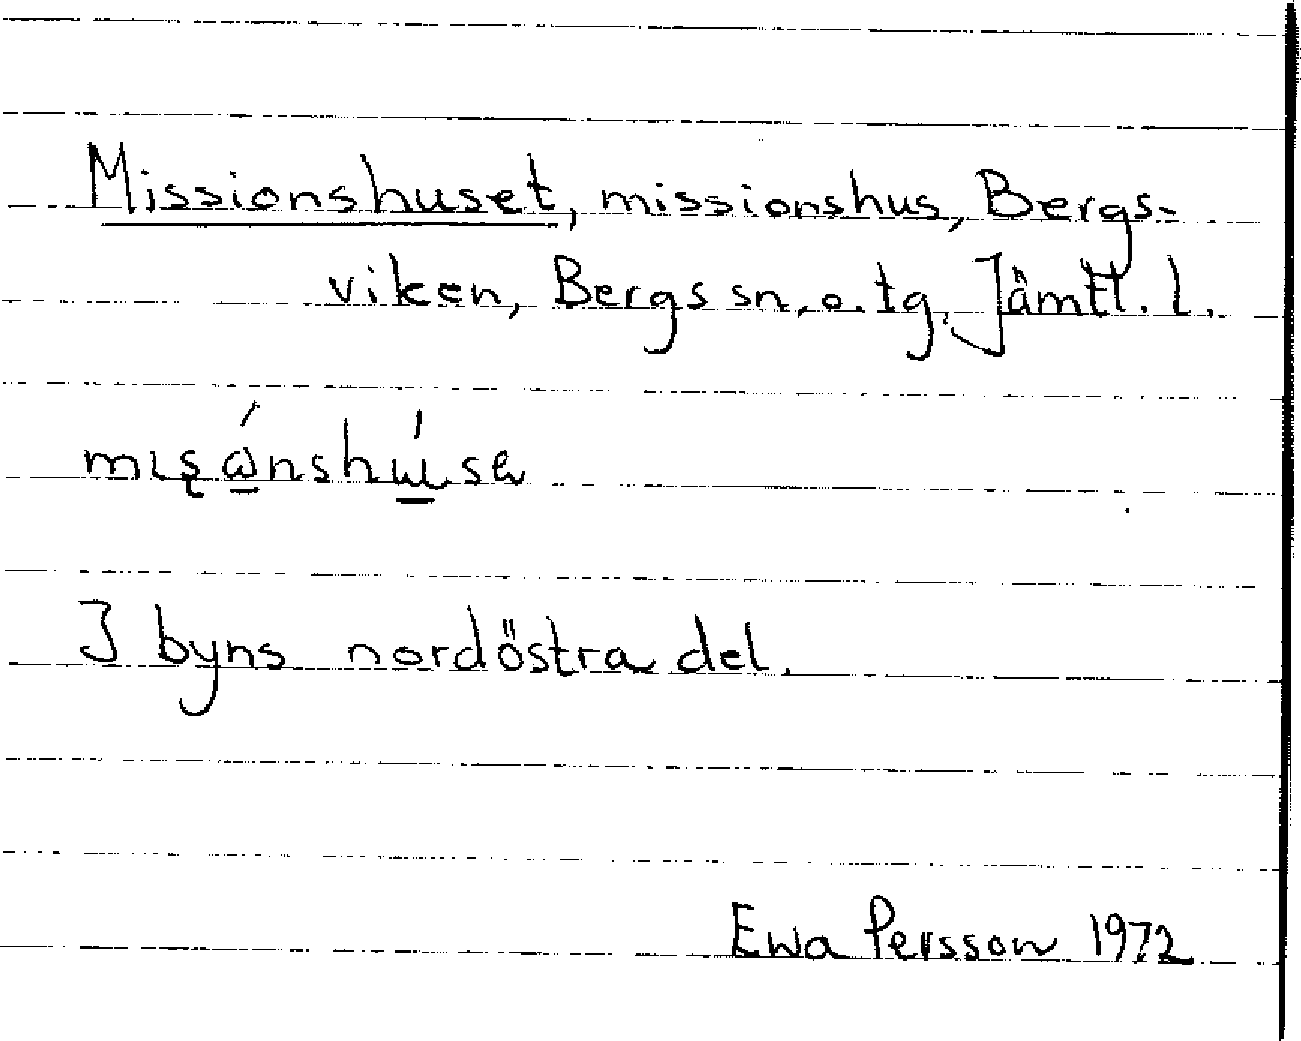 Missionshuset, missionshus, Bergs-
viken, Bergs sn. o. tg. Jämtl. l.
I byns nordöstra del.
Ewa Persson 1972